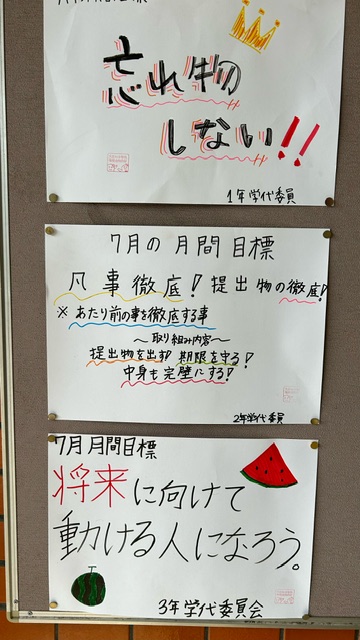 忘れ物
しない!!
1年学代委員
7月の月間目標
凡事徹底! 提出物の徹底!
※あたり前の事を徹底する事
〜取り組み内容〜
提出物を出す! 期限を守る!
中身も完璧にする!
2年学代委員
7月月間目標
将来に向けて
動ける人になろう。
3年学代委員会